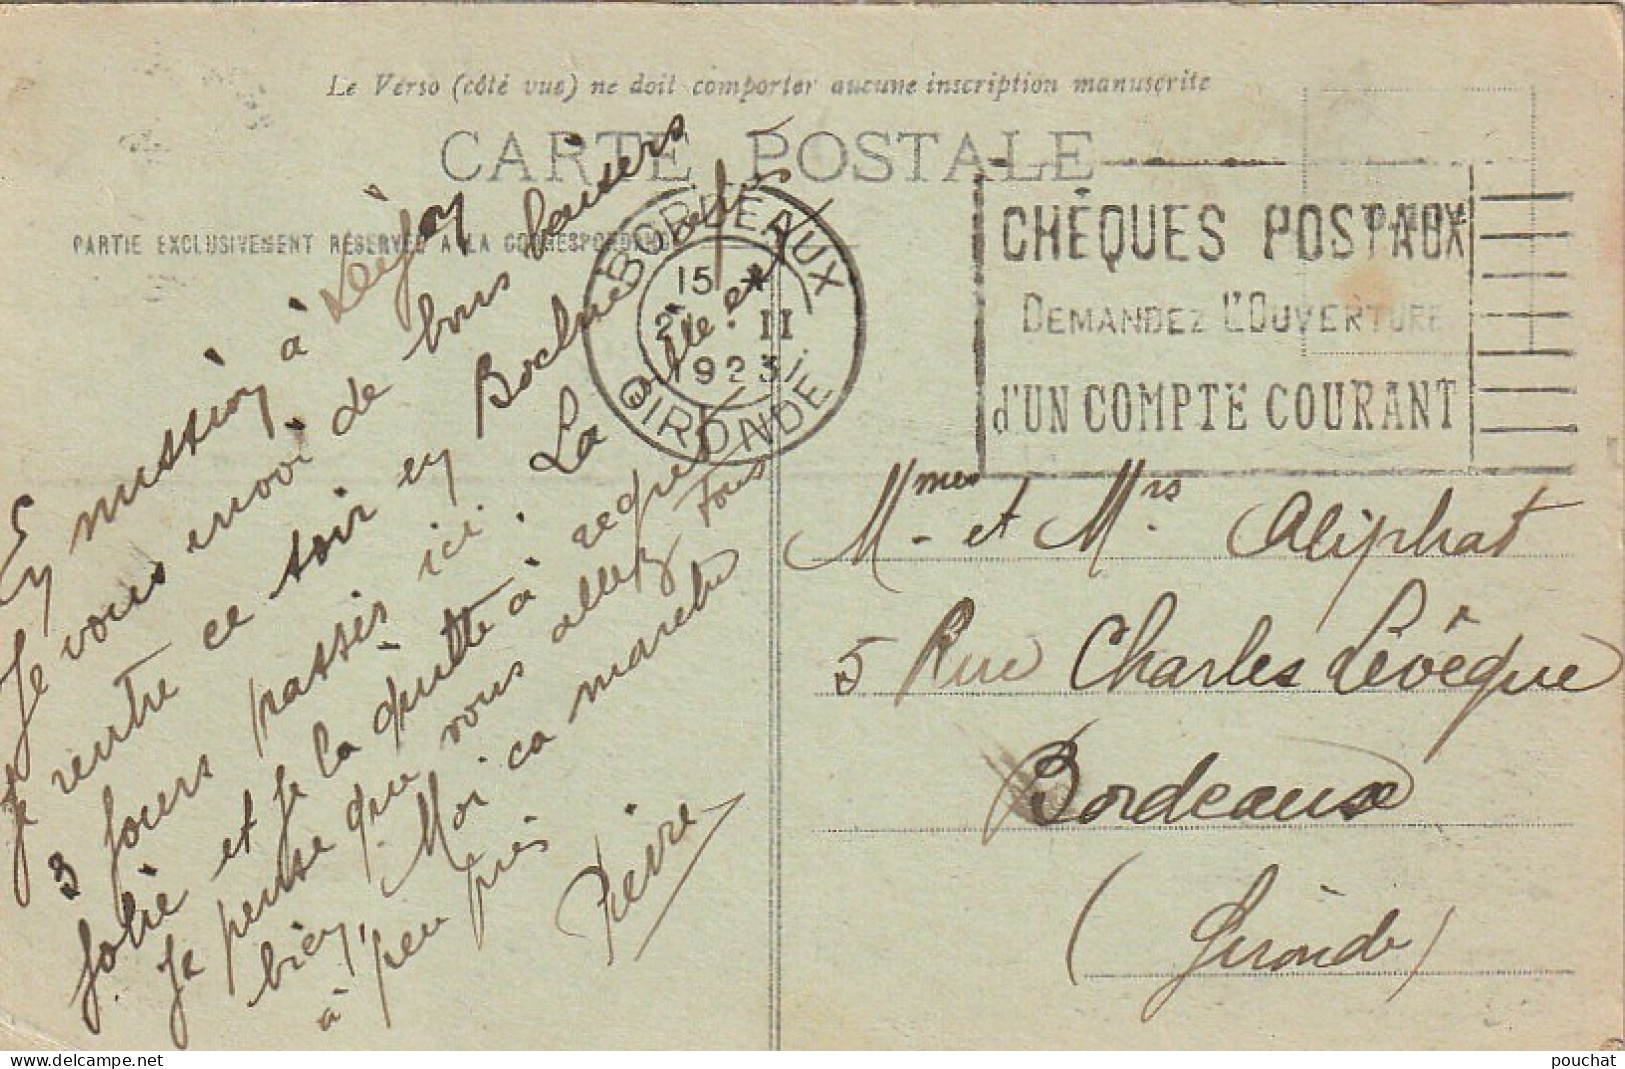 Le Verso (côté vue) ne doit comporter aucune inscription manuscrite
CARTE POSTALE
PARTIE EXCLUSIVEMENT RÉSERVÉE A LA CORRESPONDANCE
BORDEAUX
15
2 II
1923
GIRONDE
CHÈQUES POSTAUX
DEMANDEZ L'OUVERTURE
d'UN COMPTE COURANT
En mission à
Je vous envoi de bons baisers
Je rentre ce soir en Bochie après
3 jours passés ici. La ville est
jolie et je la quitte à regret
Je pense que vous allez tous
bien, Moi ça marche
à peu près
Pierre
Mmes et Mrs Aliphat
5 Rue Charles Lévêque
Bordeaux
(Gironde)
pouchat